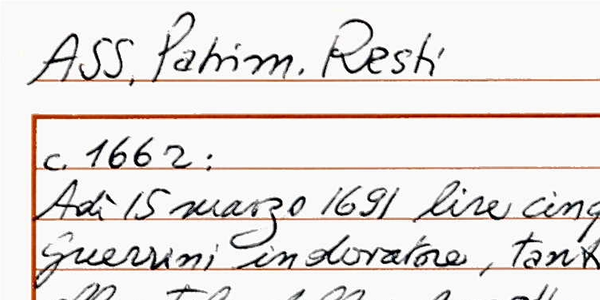 ASS, Patrim. Resti
c. 1662:
Adì 15 marzo 1691 lire cinq
Guerrini indoratore, tant